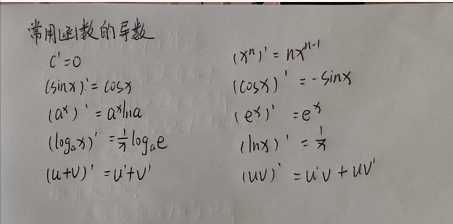 常用函数的导数
C'=0 (xⁿ)'=nxⁿ⁻¹
(sinx)'=cosx (cosx)'=-sinx
(aˣ)'=aˣlna (eˣ)'=eˣ
(logₐx)'=1/x logₐe (lnx)'=1/x
(u+v)'=u'+v' (uv)'=u'v+uv'